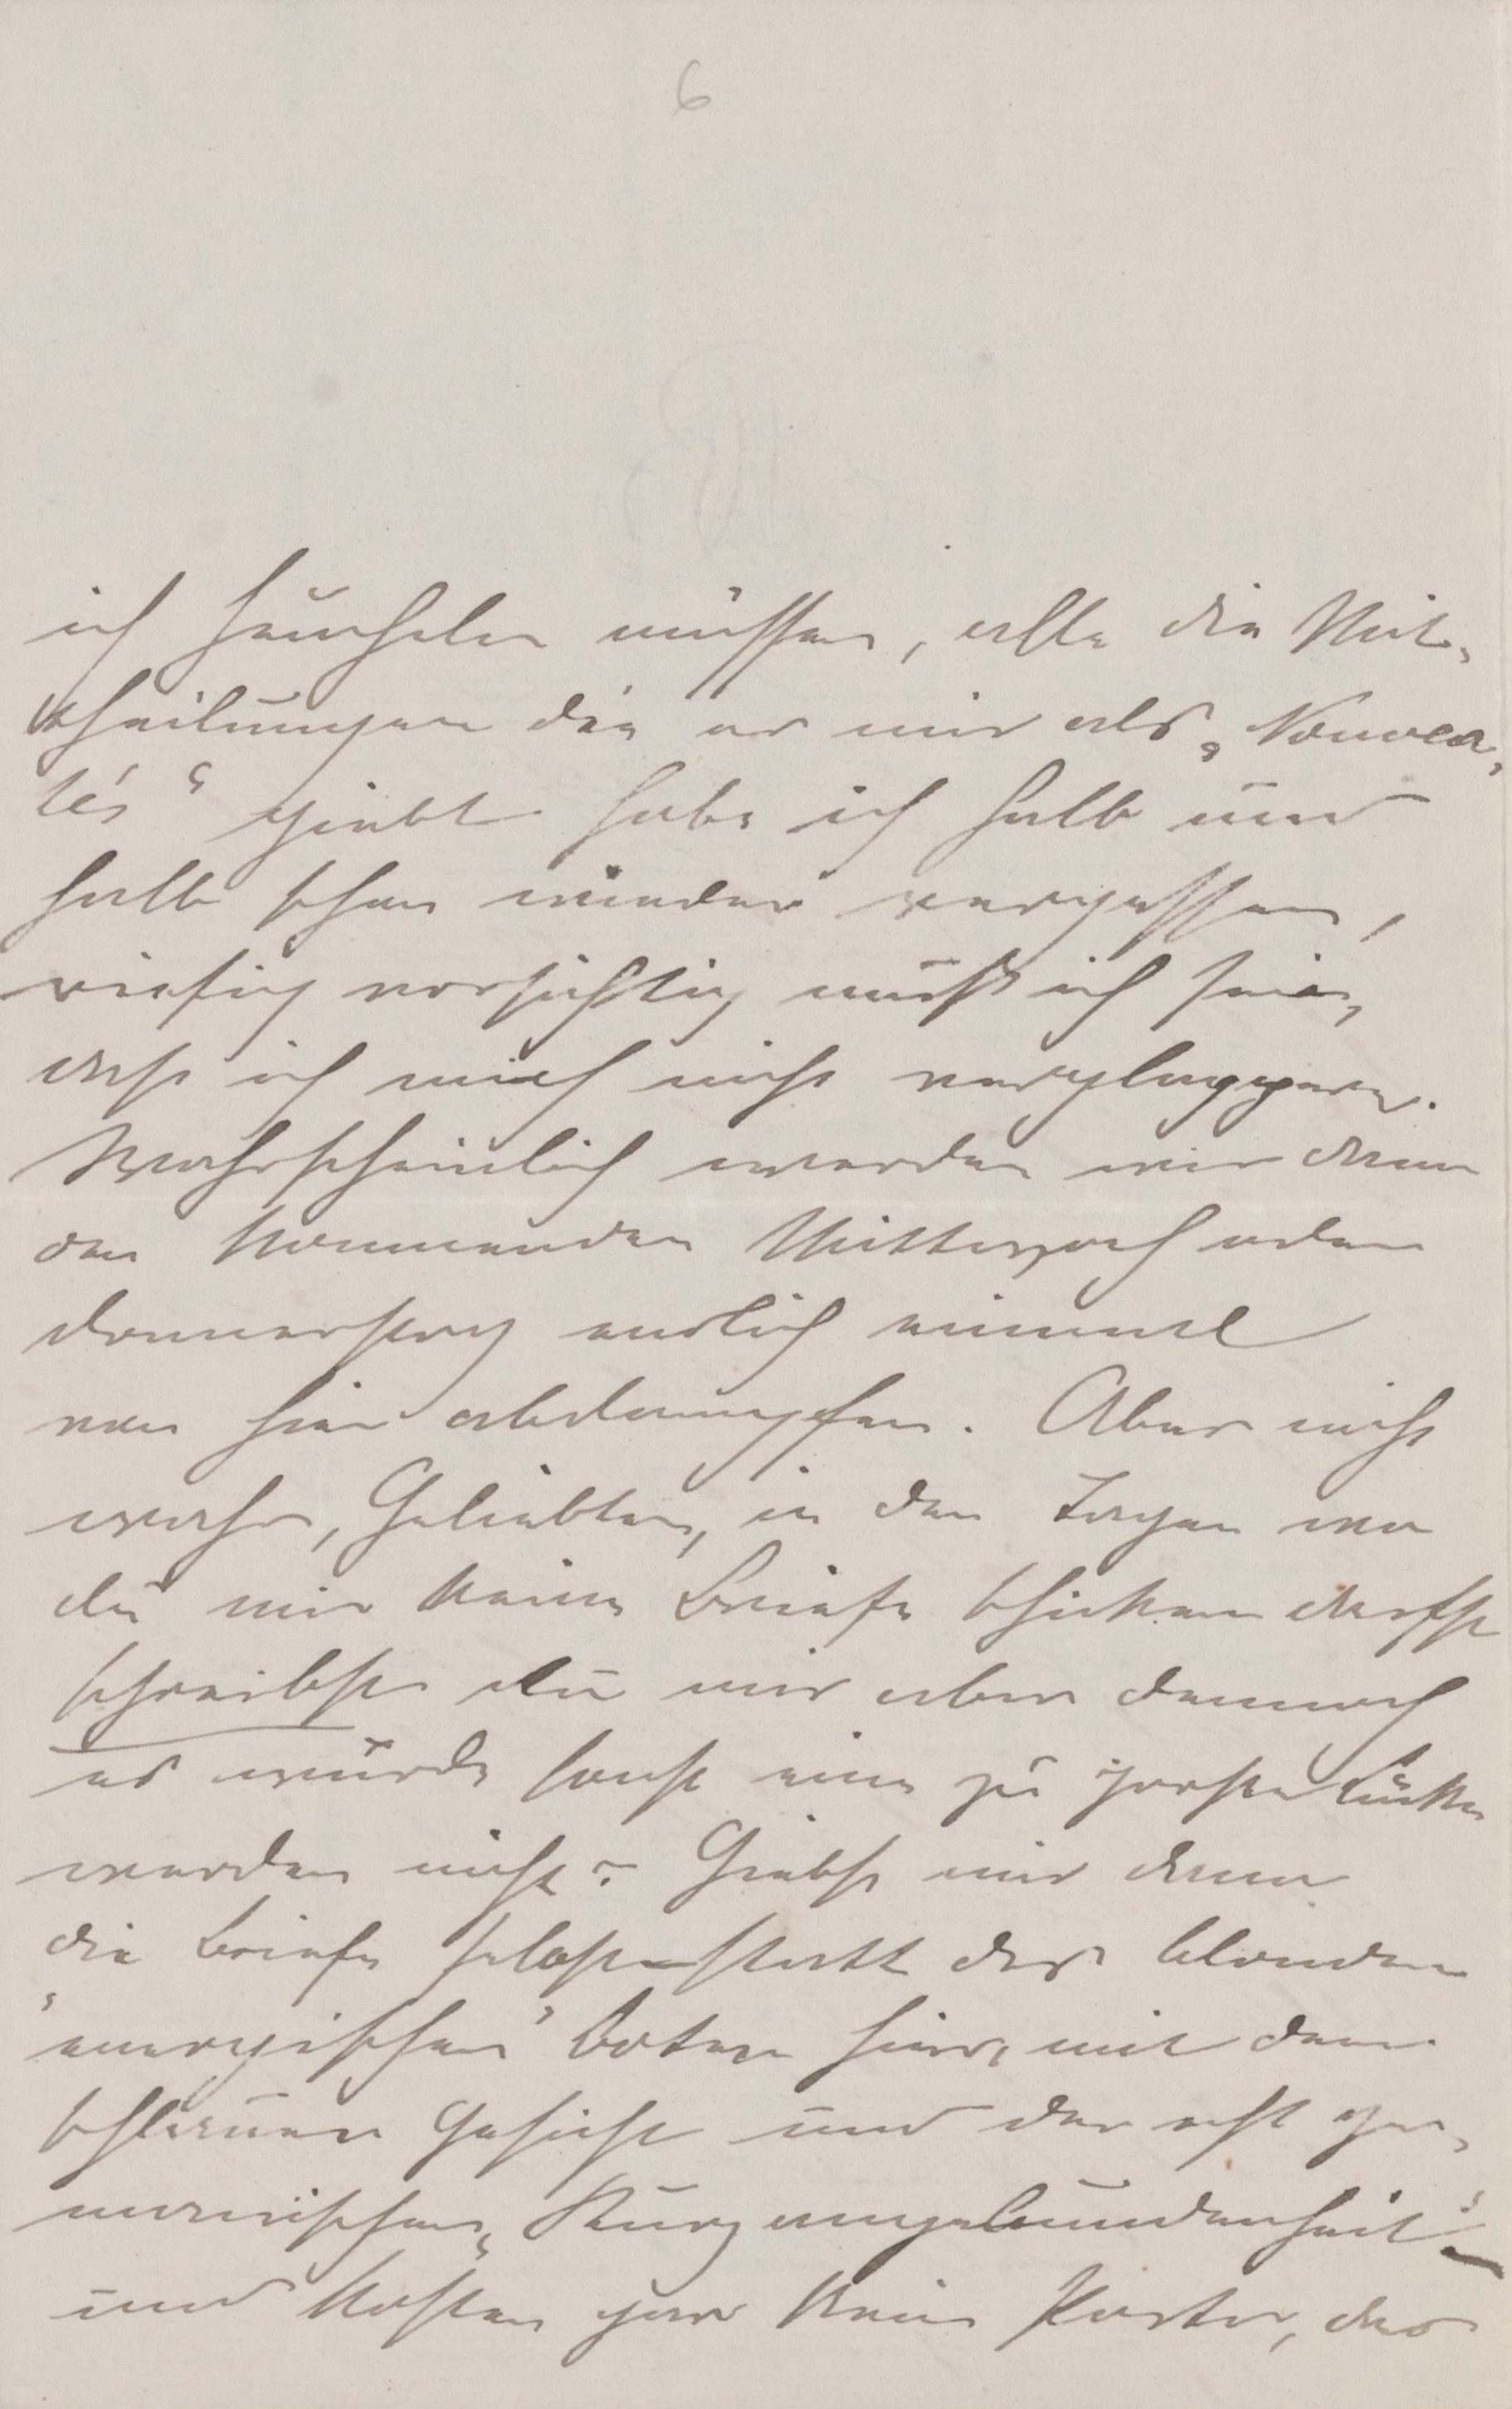 6
ich heucheln müssen, alle die Mit-
theilungen die er mir als „Nouvea-
tés“ giebt habe ich halb und
halb schon wieder vergessen,
riesig vorsichtig muß ich sein,
daß ich mich nicht verplappere.
Wahrscheinlich werden wir dann
den kommenden Mittwoch oder
Donnerstag endlich einmal
von hier abdampfen. Aber nicht
wahr, Geliebter, in den Tagen wo
du mir keine Briefe schicken darfst
schreibst du mir aber dennoch
es würde sonst eine zu große Lücke
werden nicht? Giebst mir dann
die Briefe selbst statt des blonden
"energischen" Boten hier, mit dem
schlauen Gesicht und der echt ge-
manischen „Kurzangebundenheit“
und kosten gar kein Porto, das